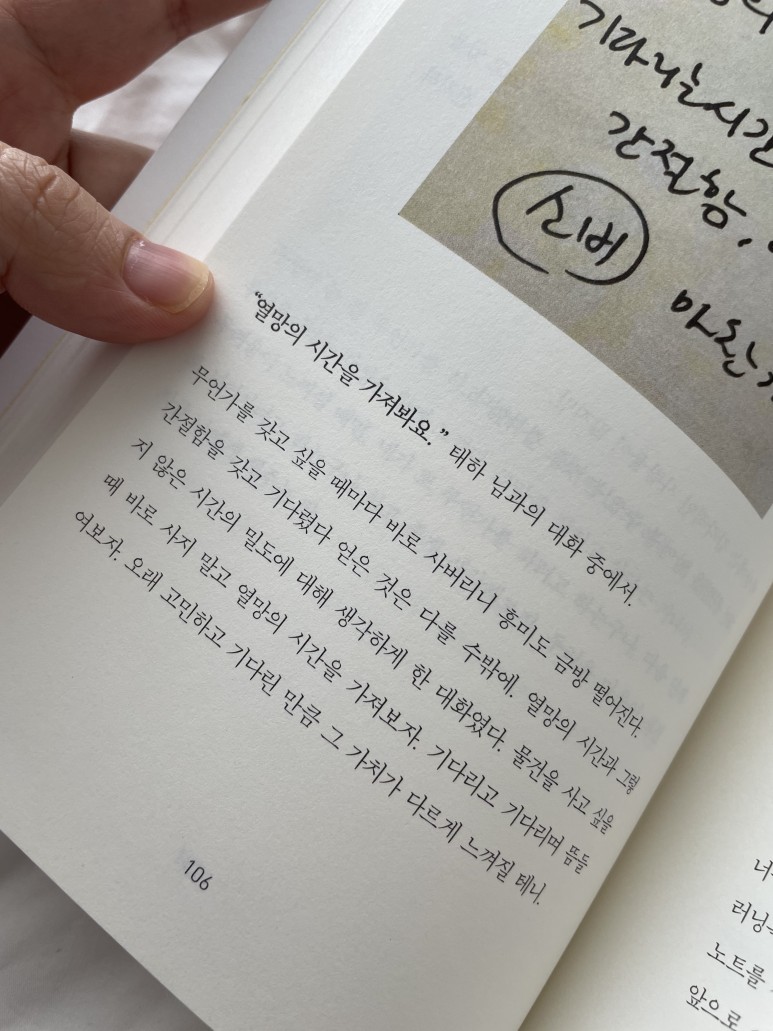 기다리는 시간
간절함,
신비
마찬
"열망의 시간을 가져봐요." 태하 님과의 대화 중에서.
무언가를 갖고 싶을 때마다 바로 사버리니 흥미도 금방 떨어진다.
간절함을 갖고 기다렸다 얻은 것은 다를 수밖에. 열망의 시간과 그렇
지 않은 시간의 밀도에 대해 생각하게 한 대화였다. 물건을 사고 싶을
때 바로 사지 말고 열망의 시간을 가져보자. 기다리고 기다리며 뜸들
여보자. 오래 고민하고 기다린 만큼 그 가치가 다르게 느껴질 테니.
106
러닝
노트를
앞으로